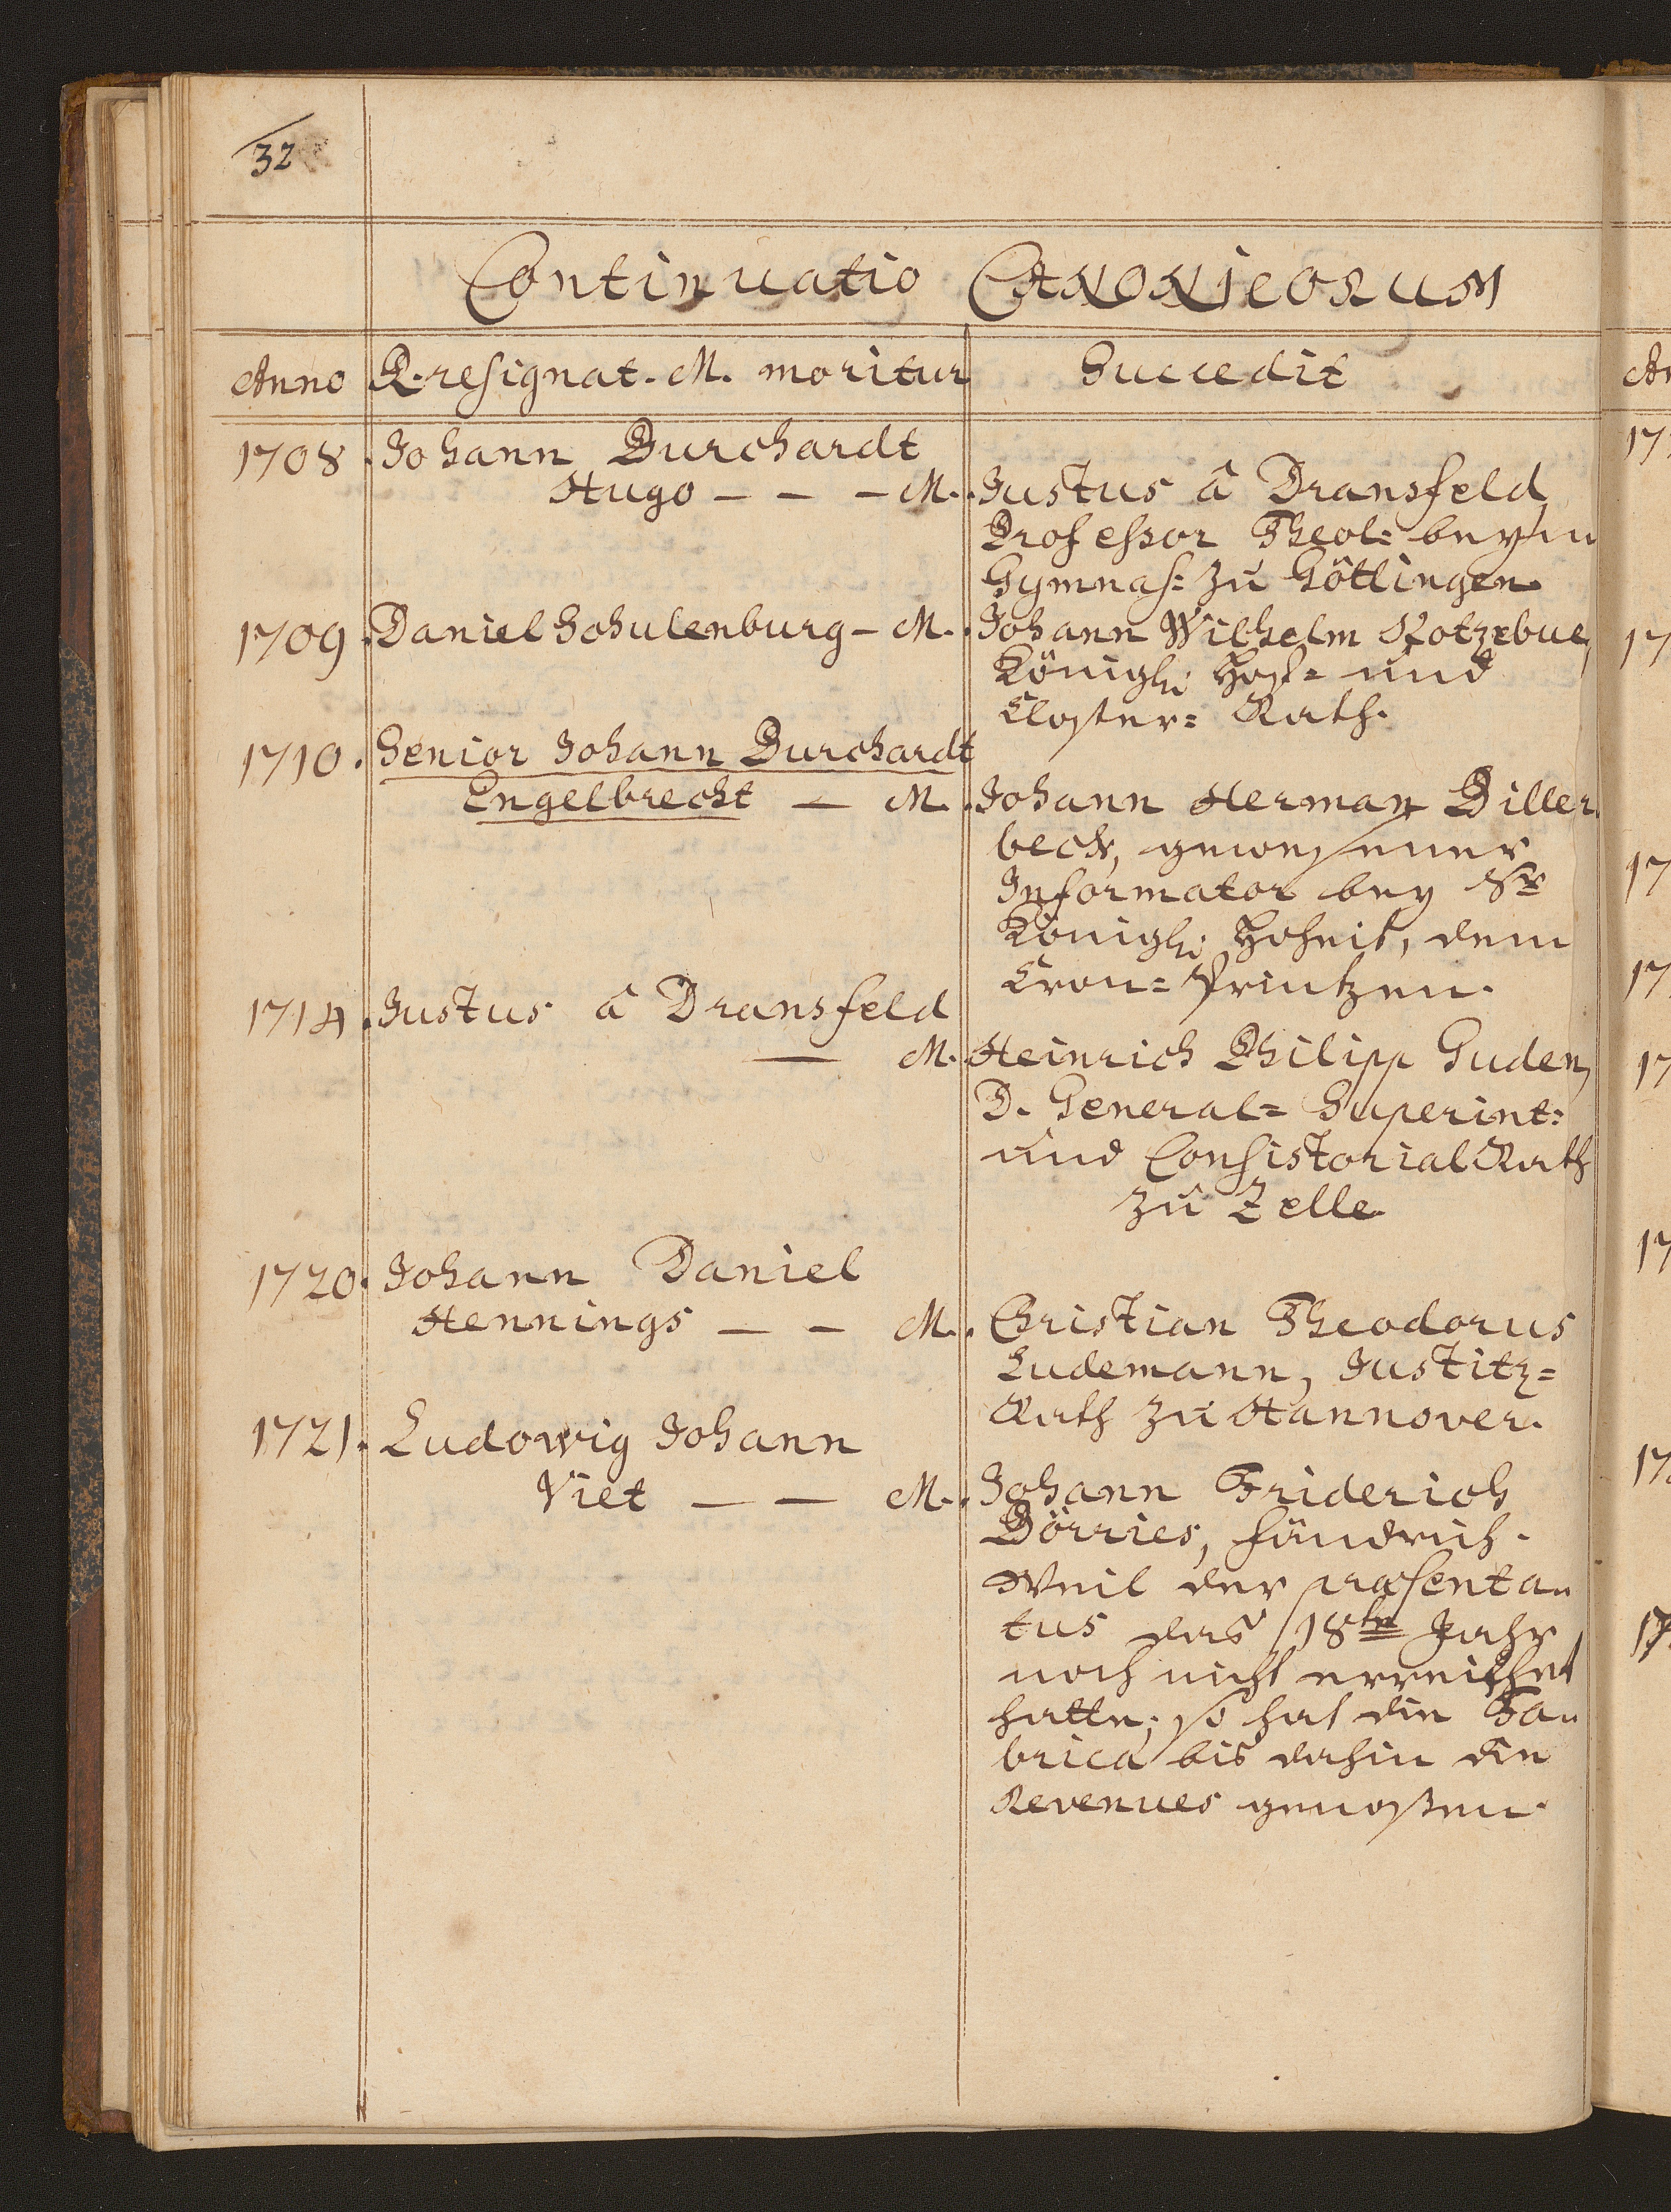 32
Continuatio CANONICORUM
Anno R. resignat. M. moritur Succedit
1708. Johann Burchardt
Hugo – – – M. Justus â Dransfeld
Professor Theol: beym
Gymnas: zu Göttingen.
1709. Daniel Schulenburg – M. Johann Wilhelm Kotzebue,
Königl. Hof= und
Closter= Rath.
1710. Senior Johann Burchardt
Engelbrecht – M. Johann Herman Biller
beck, gewesener
Informator bey Sr
Königl. Hoheit, dem
Cron= Printzen.
1714. Justus â Dransfeld
— M. Heinrich Philipp Guden,
D. General= Superint:
und Consistorial Rath
zu Zelle.
1720. Johann Daniel
Hennings – – M. Christian Theodorus
Ludemann, Justitz=
Rath zu Hannover.
1721. Ludowig Johann
Viet – – M. Johann Friderich
Dörries, Fändrich.
Weil der præsenta
tus das 18te Jahr
noch nicht erreichet
hatte; so hat die Fa
brica bis dahin die
Revenues genoßen.
An
17
17
17
17
17
17
17
17